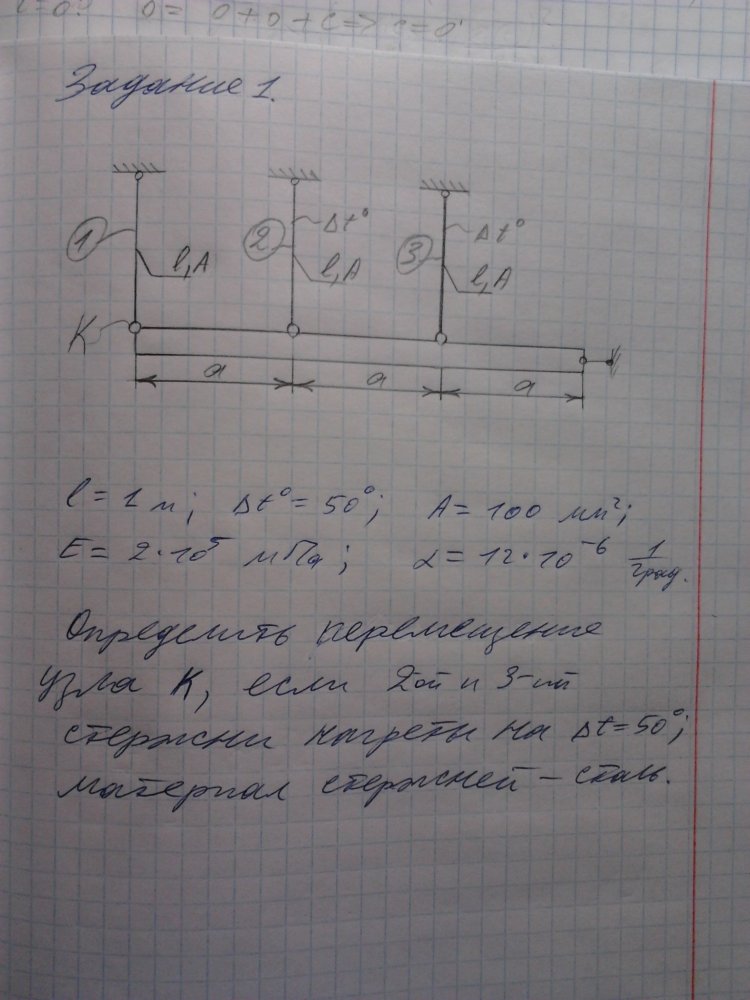 0 = 0 + 0 + c => c = 0
Задание 1.
1 l, A
2 Δt° l, A
3 Δt° l, A
K
a a a
l = 1 м; Δt° = 50°; A = 100 мм²;
E = 2·10⁵ мПа; α = 12·10⁻⁶ 1/град.
Определить перемещение
узла К, если 2ой и 3-ий
стержни нагреты на Δt=50°;
материал стержней – сталь.